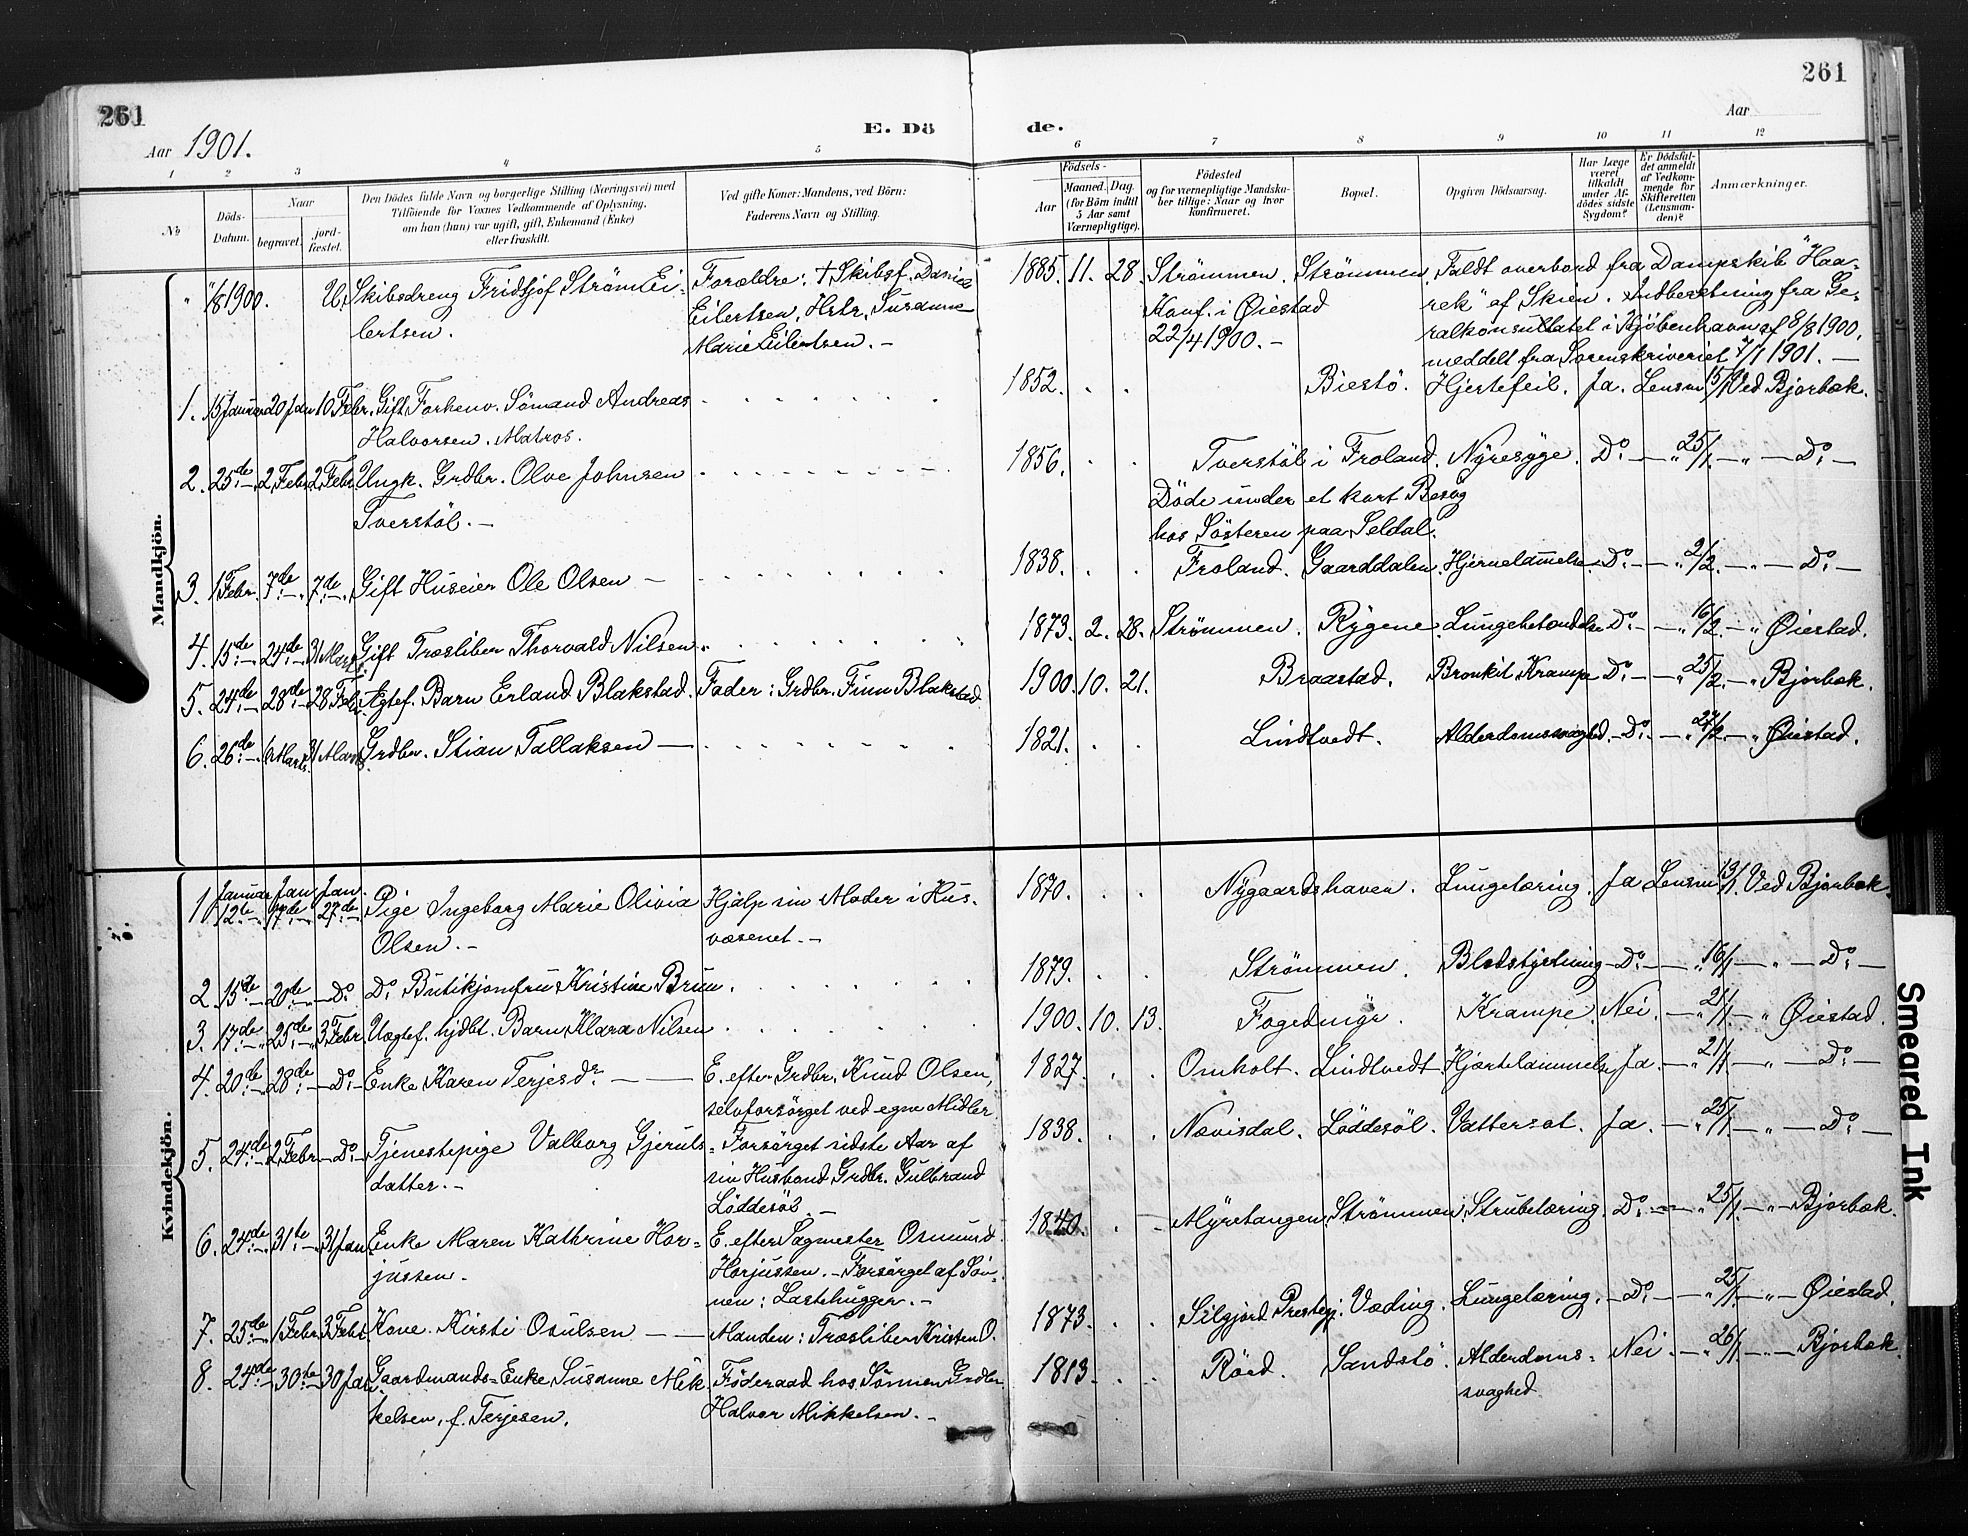 261
261
Aar 1901.
E. Dö
de.
Aar
1 2 3 4 5 6 7 8 9 10 11 12
No
Döds-Datum.
Naar
begravet.
jord-fæstet.
Den Dödes fulde Navn og borgerlige Stilling (Næringsvei) med
Tilföiende for Voxnes Vedkommende af Oplysning,
om han (hun) var ugift, gift, Enkemand (Enke)
eller fraskilt.
Ved gifte Koner: Mandens, ved Börn:
Faderens Navn og Stilling.
Födsels-
Aar
Maaned. Dag.
(for Börn indtil
5 Aar samt
Værnepligtige).
Födested
og for værnepligtige Mandska-
ber tillige: Naar og hvor
konfirmeret.
Bopæl.
Opgiven Dödsaarsag.
Har Læge
været
tilkaldt
under Af-
dödes sidste
Sygdom?
Er Dödsfal-
det anmeldt
af Vedkom-
mende for
Skifteretten
(Lensman-
den)?
Anmærkninger.
Mandkjön.
" 1/8 1900. U. Skibsdreng Fridtjof Ström Ei- Forældre: † Skibsf. Daniel 1885. 11. 28. Strømmen. Strømmen. Faldt overbord fra Dampskib "Haa-
lertsen. Eilertsen, Hstr. Susanne Konf. i Øiestad rek" af Skien. Indberetning fra Ge-
Marie Eilertsen. - 22/4 1900. - ralkonsulatet i Kjöbenhavn af 8/8 1900,
meddelt fra Sorenskriveriet 7/1 1901. -
1. 15 Januar 20 Jan 10 Febr. Gift Forhenv. Sömand Andreas 1852. Biestö. Hjertefeil. Ja. Lensm 15/1 Ved Bjorbæk.
Halvorsen. Matros.
2. 25de 2 Febr 2 Febr Ungk. Grdbr. Olve Johnsen 1856. Tverstöl i Froland. Nyresyge. Do - " 25/1 - " - Do -
Tverstöl. - Döde under et kort Besög
hos Sösteren paa Seldal.
3. 1 Febr. 7de 7de Gift Huseier Ole Olsen - 1838. Froland. Gaarddalen. Hjernelammelse Do - " 2/2 - " - Do -
4. 15de 24de 31 Marts Gift Træsliber Thorvald Nilsen. 1873. 2. 28. Strømmen. Rygene. Lungebetændelse Do - " 16/2 - " Øiestad.
5. 24de 28de 28 Febr. Ægtef. Barn Erland Blakstad. Fader: Grdbr. Finn Blakstad 1900. 10. 21. Braastad. Bronkit Krampe Do - " 25/2 - " Bjorbæk.
6. 26de 6 Marts 31 Marts Grdbr. Stian Tallaksen - 1821. Lindtvedt. Alderdomssvaghed. Do - " 27/2 - " Øiestad.
Kvindekjön.
1 Januar 12te Jan 17de Jan. 27de Pige Ingeborg Marie Olivia Hjalp sin Moder i Hus- 1870. Nygaardshaven. Lungetæring. Ja Lensm 13/1 Ved Bjorbæk.
Olsen. - væsenet. -
2. 15de 20de Do Do Butikjomfru Kristine Bruun. 1879. Strømmen. Blodstyrtning Do - " 16/1 - " - Do -
3. 17de 25de 3 Febr. Uægtef. hjdbt. Barn Klara Nilsen 1900. 10. 13. Fogedmyr. Krampe. Nei. - " 21/1 - " Øiestad.
4. 20de 28de Do - Enke Karen Terjesdr. - E. efter Grdbr. Knud Olsen, 1827. Omholt. Lindtvedt. Hjertelammelse Ja. - " 21/1 - " - Do -
selvforsörget ved egne Midler.
5. 24de 2 Febr Do - Tjenestepige Valborg Gjeruls- Forsörget sidste Aar af 1838. Nævisdal. Löddesöl. Vattersot. Ja. - " 25/1 - " - Do -
datter. - sin Husbond Grdbr. Gulbrand
Löddesöl. -
6. 24de 31te 31 Jan Enke Maren Kathrine Hor- E. efter Sagmester Osmund 1840. Myretangen. Strømmen. Strubetæring. Do - " 25/1 - " - Bjorbæk.
jussen. Horjussen. - Forsörget af Sön-
nen: Lastehugger. -
7. 25de 1 Febr 3 Febr Kone. Kirsti Osulsen - Manden: Træsliber Kristen O. 1873. Silgjord Prestegj. Væding. Lungetæring. Do - " 25/1 - " - Øiestad.
8. 24de 30te 30 Jan Gaardmands-Enke Susanne Mik- Föderaad hos Sönnen Grdbr. 1813. Röed. Sandstö. Alderdoms- Nei. - " 26/1 - " - Bjorbæk.
kelsen, f. Terjesen. Halvor Mikkelsen. - svaghed
Smeared Ink